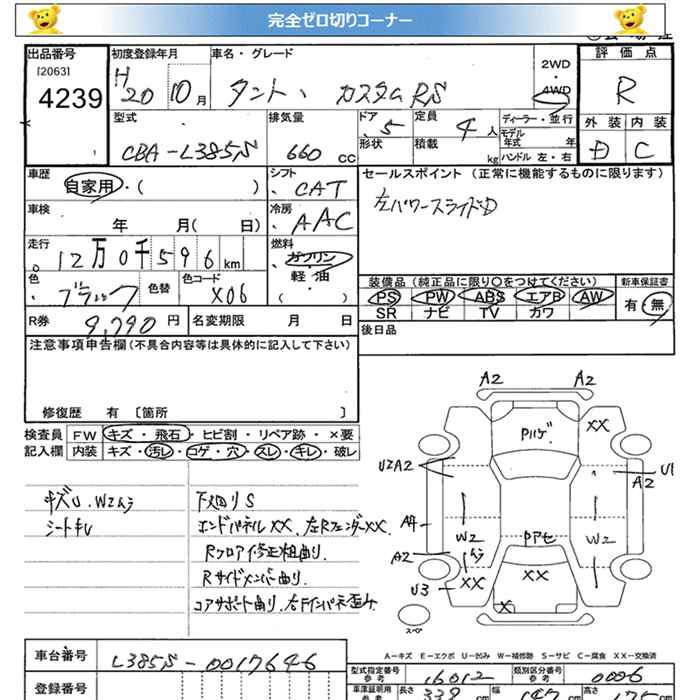 完全ゼロ切りコーナー
出品番号
[2063]
4239
初度登録年月
H20 10月
車名・グレード
タント、 カスタムRS
2WD
・
4WD
評価点
R
外装 内装
D C
型式
CBA-L385S
排気量
660 CC
ドア
、5
形状
定員
4人
積載
kg
ディーラー・並行
モデル年式 年
ハンドル 左・右
車歴
自家用・( )
シフト
、CAT
セールスポイント (正常に機能するものに限ります)
左パワースライドD
車検
年 月( 日)
冷房
、AAC
走行
12万0千596km
燃料
ガソリン
軽・油
( )
色
・ブラック
色替
色コード
X06
装備品 (純正品に限り○をつけてください)
PS PW ABS エアB AW
SR ナビ TV カワ
新車保証書
有・無
R券 9,790円
名変期限 月 日
後日品
注意事項申告欄(不具合内容等は具体的に記入して下さい)
修復歴 有 [箇所 ]
検査員
記入欄
FW キズ・飛石・ヒビ割・リペア跡・×要
内装 キズ・汚レ・コゲ・穴・スレ・キレ・破レ
キズU.W2ムラ
シートキU
下廻りS
エンドパネルXX、左RフェンダーXX.
Rクロアイ修正粗曲り.
Rサイドメンバー曲り.
コアサポート曲り、右Fインパネ歪み
A2 A2
Pハゲ XX
U2A2 U1
A2
A4 W2 W2
Pアセ
A2 ムラ
XX XX
U3 X
スペア
A-キズ E-エクボ U-凹み W-補修跡 S-サビ C-腐食 XX-交換済
車台番号
L385S-0017646
登録番号
型式指定番号
参考
16012
類別区分番号
参考
0006
車庫証明用
参考
長さ 339 cm
幅 147 cm
高さ 175 cm